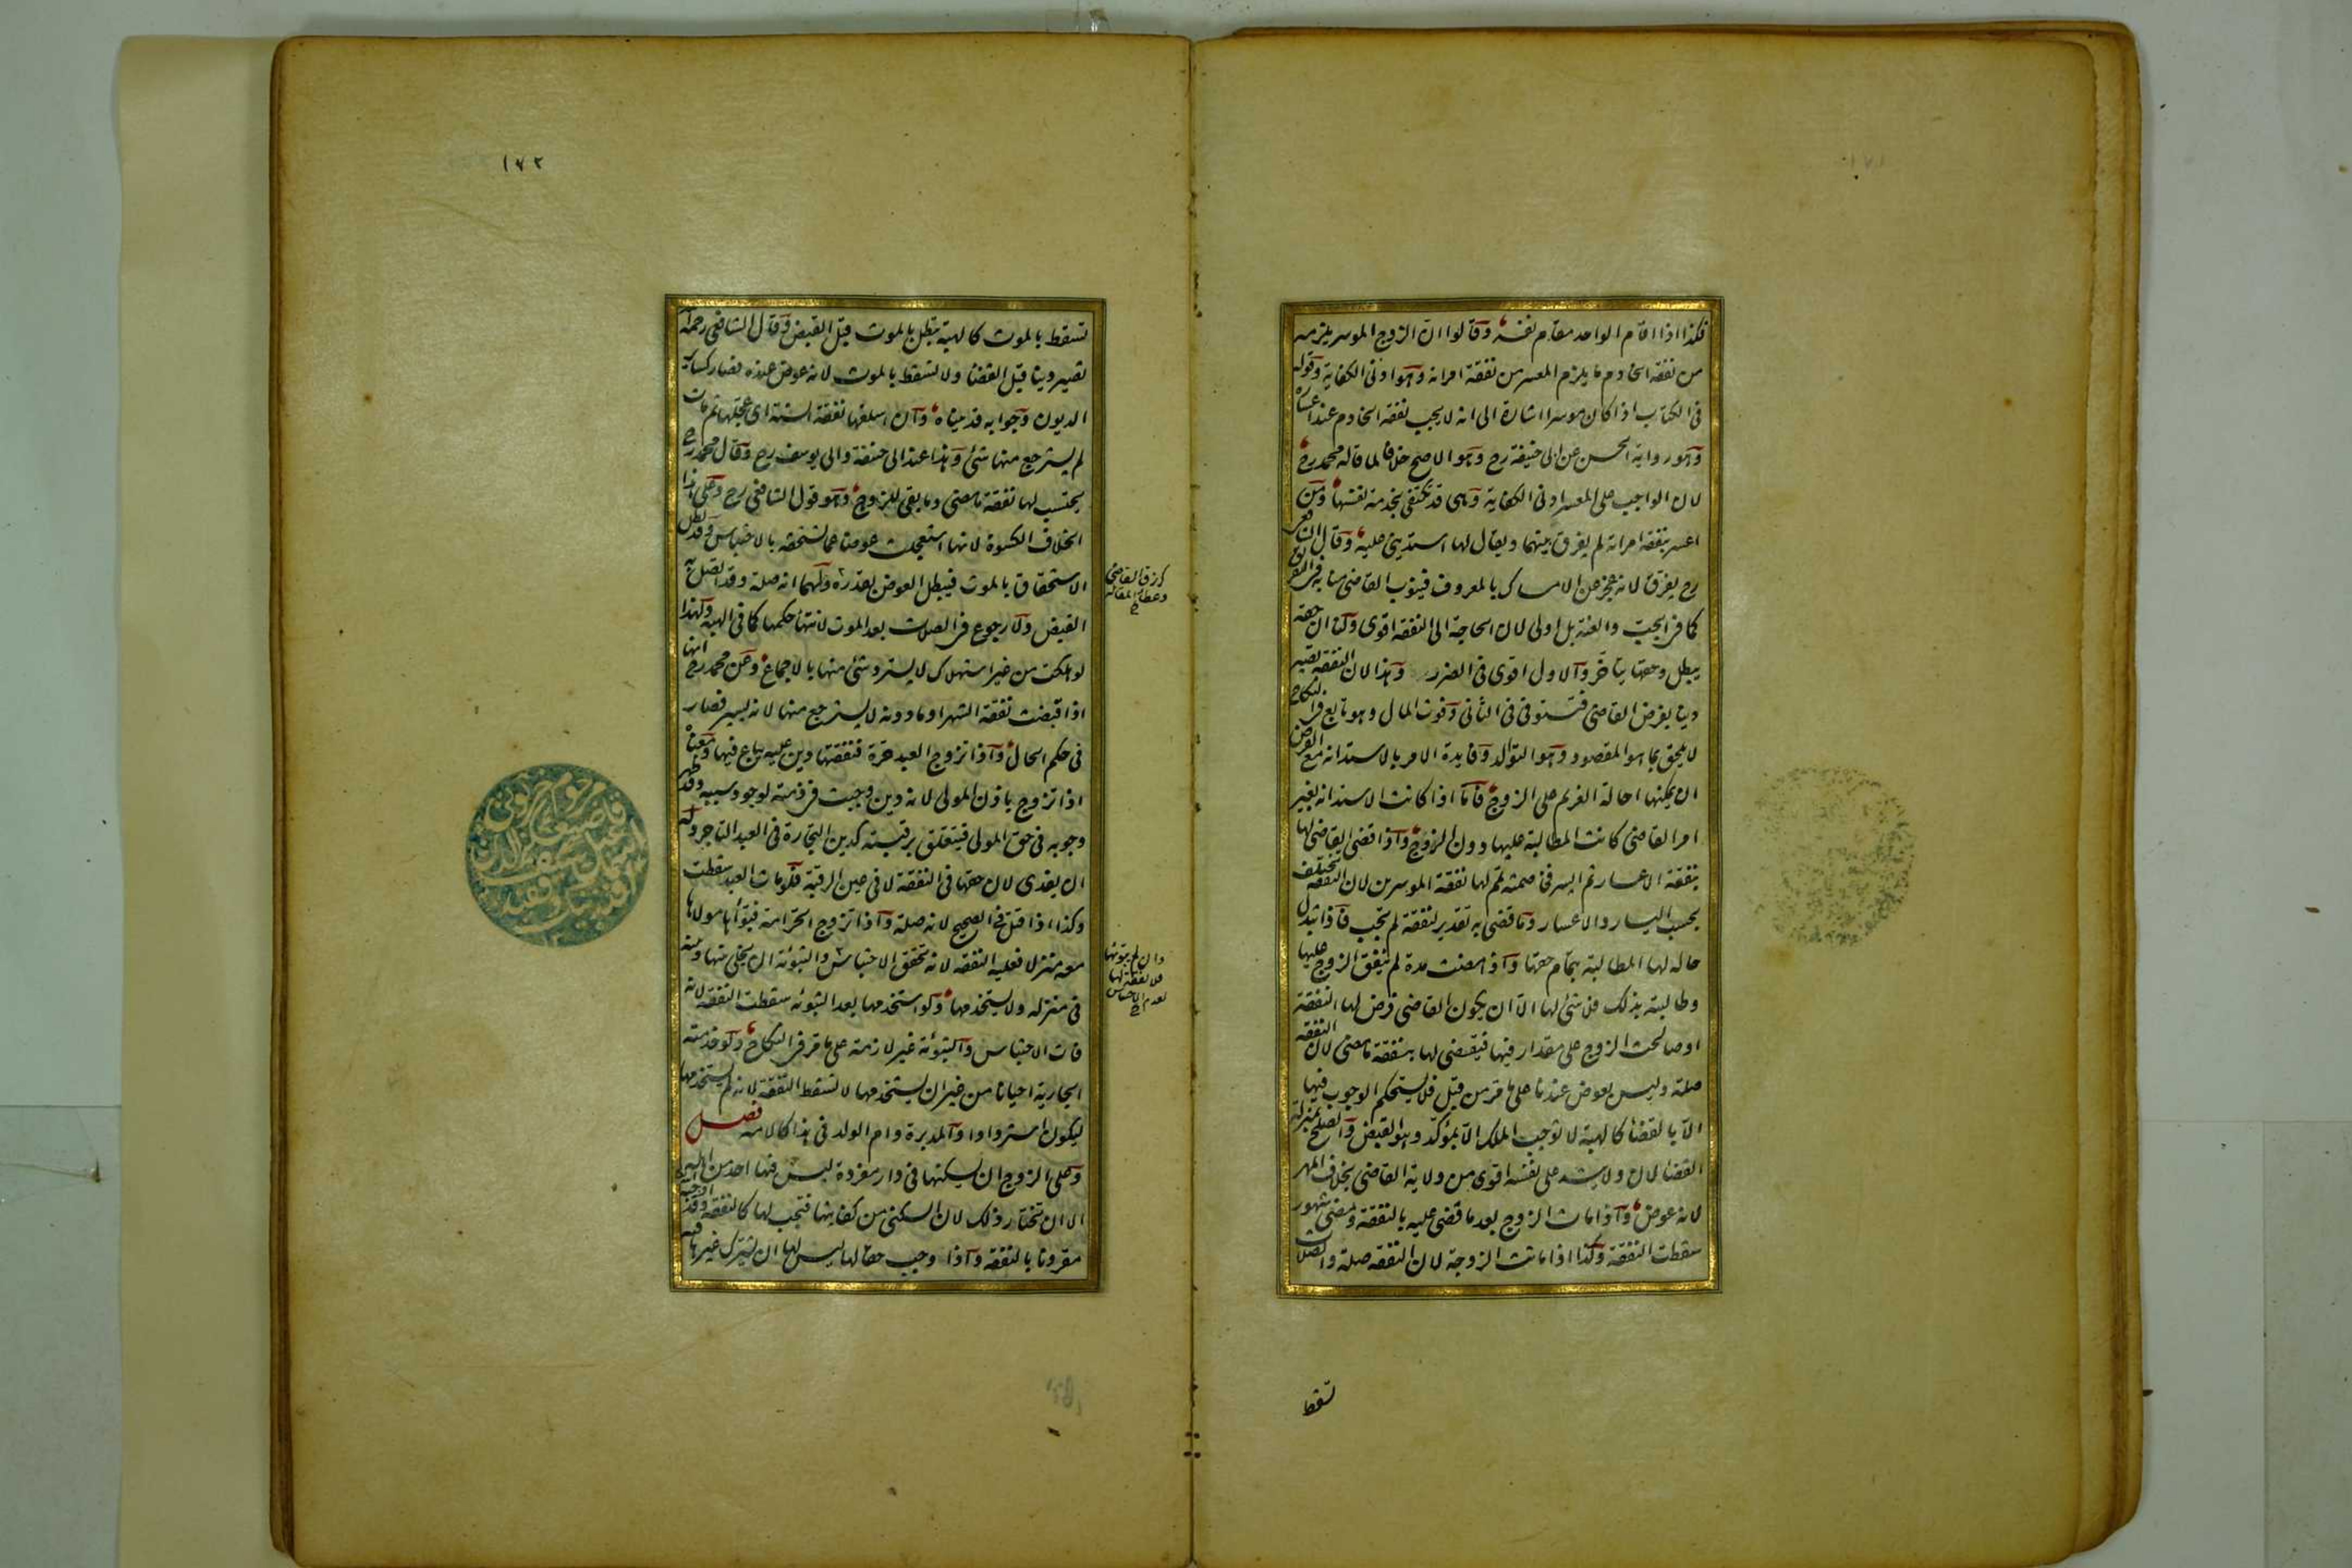 فكذا اذا اقام الواحد مقام نفسه وقالوا ان الزوج الموسر يلزمه
من نفقة الخادم ما يلزم المعسر من نفقة امرأته وهو ادنى الكفاية وقوله
فى الكتاب اذا كان موسرا اشارة الى انه لا يجب نفقة الخادم عند اعساره
وهو رواية الحسن عن ابى حنيفة رح وهو الاصح خلافا لما قاله محمد رح
لان الواجب على المعسر ادنى الكفاية وهى قد تكتفى بخدمة نفسها ومن
اعسر بنفقة امرأته لم يفرق بينهما ويقال لها استدينى عليه وقال الشافعى
رح يفرق لانه عجز عن الامساك بالمعروف فينوب القاضى منابه فى التفريق
كما فى الجب والعنة بل اولى لان الحاجة الى النفقة اقوى ولنا ان حقه
يبطل وحقها يتأخر والاول اقوى فى الضرر وهذا لان النفقة تصير
دينا بفرض القاضى فتستوفى فى الثانى وفوت المال وهو تابع فى النكاح
لا يلحق بما هو المقصود وهو التوالد وفايدة الامر بالاستدانة مع الفرض
ان يمكنها احالة الغريم على الزوج فاما اذا كانت الاستدانة بغير
امر القاضى كانت المطالبة عليها دون الزوج واذا قضى القاضى لها
بنفقة الاعسار ثم ايسر فخاصمته تمم لها نفقة الموسرين لان النفقة تختلف
بحسب اليسار والاعسار وما قضى به تقدير لنفقة لم تجب فاذا تبدل
حاله لها المطالبة بتمام حقها واذا مضت مدة لم ينفق الزوج عليها
وطالبته بذلك فلا شئ لها الا ان يكون القاضى فرض لها النفقة
او صالحت الزوج على مقدار فيها فيقضى لها بنفقة ما مضى لان النفقة
صلة وليس بعوض عندنا على ما مر من قبل فلا يستحكم الوجوب فيها
الا بالقضاء كالهبة لا توجب الملك الا بمؤكد وهو القبض والصلح بمنزلة
القضاء لان ولايته على نفسه اقوى من ولاية القاضى بخلاف المهر
لانه عوض واذا مات الزوج بعد ما قضى عليه بالنفقة ومضى شهور
سقطت النفقة وكذا اذا ماتت الزوجة لان النفقة صلة والصلات
تسقط
١٧٢
تسقط بالموت كالهبة تبطل بالموت قبل القبض وقال الشافعى رحمه الله
تصير دينا قبل القضاء ولا تسقط بالموت لانه عوض عنده فصار كسائر
الديون وجوابه قد بيناه وان اسلفها نفقة السنة اى عجلها ثم مات
لم يسترجع منها شئ وهذا عند ابى حنيفة وابى يوسف رح وقال محمد رح
يحتسب لها نفقة ما مضى وما بقى للزوج وهو قول الشافعى رح وعلى هذا
الخلاف الكسوة لانها استعجلت عوضا عما تستحقه بالاحتباس وقد بطل
الاستحقاق بالموت فيبطل العوض بقدره ولهما انه صلة وقد اتصل به
القبض ولا رجوع فى الصلات بعد الموت لانتهاء حكمها كما فى الهبة ولهذا
لو هلكت من غير استهلاك لا يسترد شئ منها بالاجماع وعن محمد رح انها
اذا قبضت نفقة الشهر او ما دونه لا يسترجع منها لانه يسير فصار
فى حكم الحال واذا تزوج العبد حرة فنفقتها دين عليه يباع فيها ومعناه
اذا تزوج باذن المولى لانه دين وجبت فى ذمته لوجود سببه وقد ظهر
وجوبه فى حق المولى فيتعلق برقبته كدين التجارة فى العبد التاجر وله
ان يفدى لان حقها فى النفقة لا فى عين الرقبة فلو مات العبد سقطت
وكذا اذا قتل فى الصحيح لانه صلة واذا تزوج الحر امة فبوأها مولاها
معه منزلا فعليه النفقة لانه تحقق الاحتباس والتبوئة ان يخلى بينها وبينه
فى منزله ولا يستخدمها ولو استخدمها بعد التبوئة سقطت النفقة لانه
فات الاحتباس والتبوئة غير لازمة على ما مر فى النكاح ولو خدمته
الجارية احيانا من غير ان يستخدمها لا تسقط النفقة لانه لم يستخدمها
ليكون استردادا والمدبرة وام الولد فى هذا كالامة فصل
وعلى الزوج ان يسكنها فى دار مفردة ليس فيها احد من اهله
الا ان تختار ذلك لان السكنى من كفايتها فتجب لها كالنفقة وقد اوجبه
مقرونا بالنفقة واذا وجب حقا لها ليس لها ان تشرك غيرها فيه
كرزق القاضى
وعطاء المقاتلة
وان لم يبوئها
فلا نفقة لها
لعدم الاحتباس